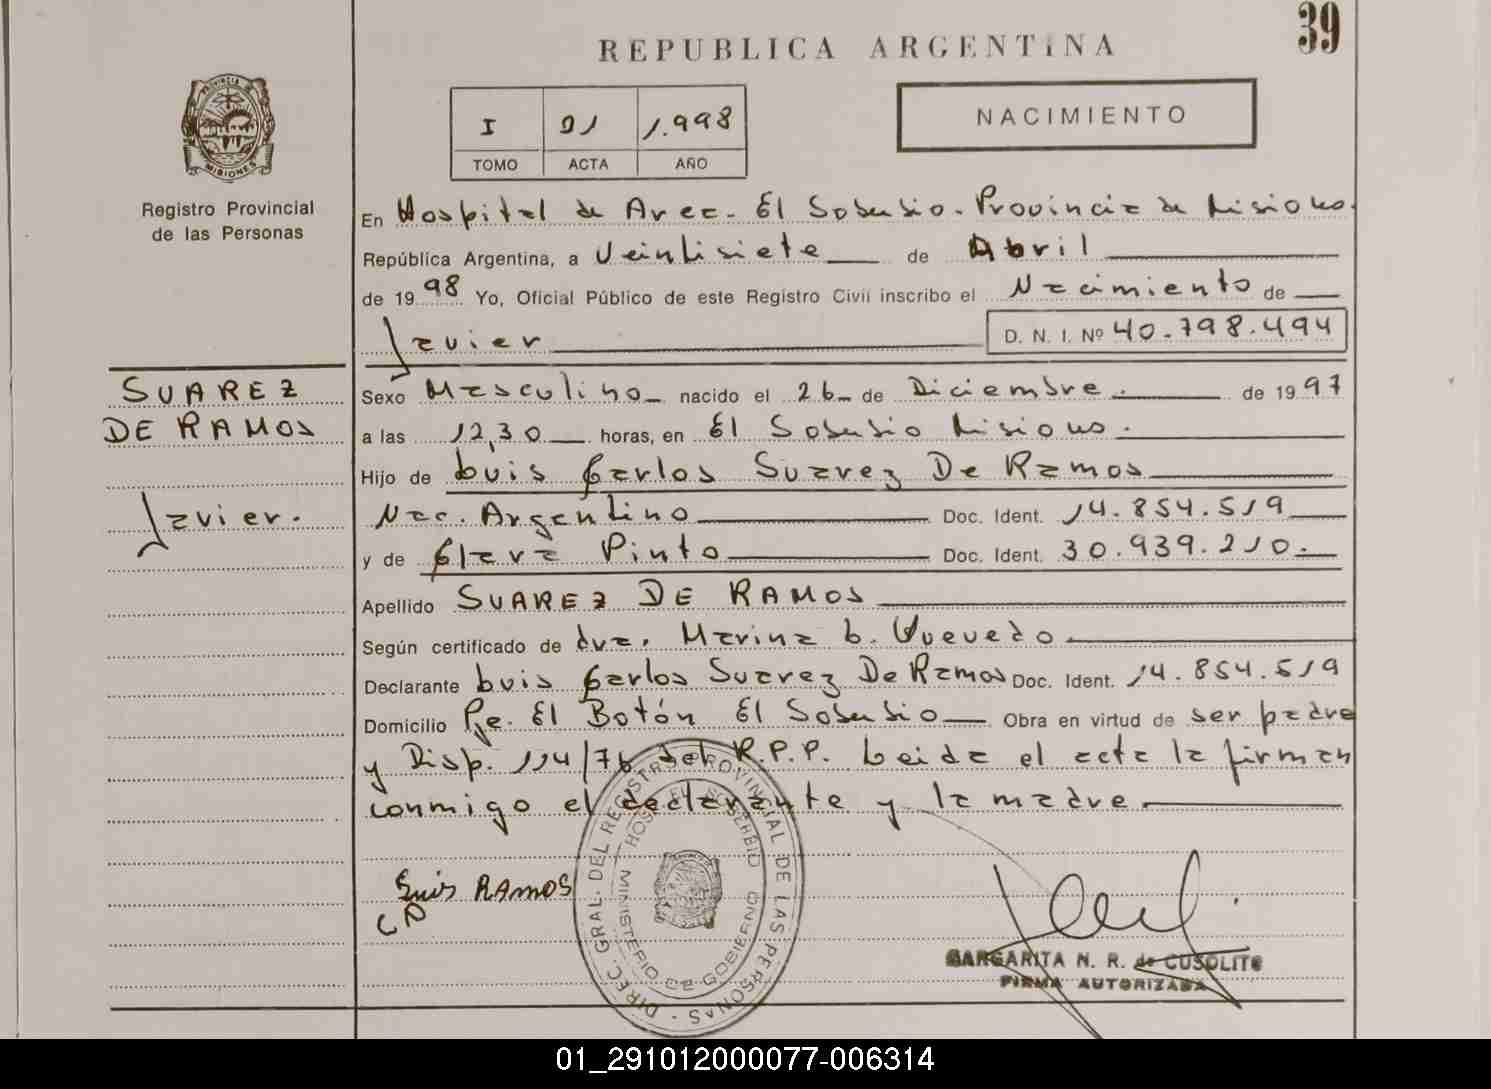 39
REPUBLICA ARGENTINA
PROVINCIA DE
MISIONES
Registro Provincial
de las Personas
I 91 1.998
TOMO ACTA AÑO
NACIMIENTO
En Hospital de Area - El Soberbio - Provincia de Misiones.
República Argentina, a Veintisiete de Abril
de 19 98 Yo, Oficial Público de este Registro Civil inscribo el Nacimiento de
Javier D. N. I. Nº 40.798.494
SUAREZ
DE RAMOS
Javier.
Sexo Masculino nacido el 26 de Diciembre. de 19 97
a las 12,30 horas, en El Soberbio Misiones.
Hijo de Luis Carlos Suarez De Ramos
Nac. Argentino Doc. Ident. 14.854.519
y de Clara Pinto Doc. Ident. 30.939.210.
Apellido SUAREZ DE RAMOS
Según certificado de dra. Marina b.
Declarante Luis Carlos Suarez De Ramos Doc. Ident. 14.854.519
Domicilio Pje. El Botón El Soberbio Obra en virtud de ser padre
y Disp. 114/76 del R.P.P. Leida el acta la firman
conmigo el declarante y la madre
Luis RAMOS
CP
DIREC. GRAL. DEL REGISTRO PROVINCIAL DE LAS PERSONAS -
MINISTERIO DE GOBIERNO
HOSP. EL SOBERBIO
MARGARITA N. R. de CUSOLITO
FIRMA AUTORIZADA
01_291012000077-006314